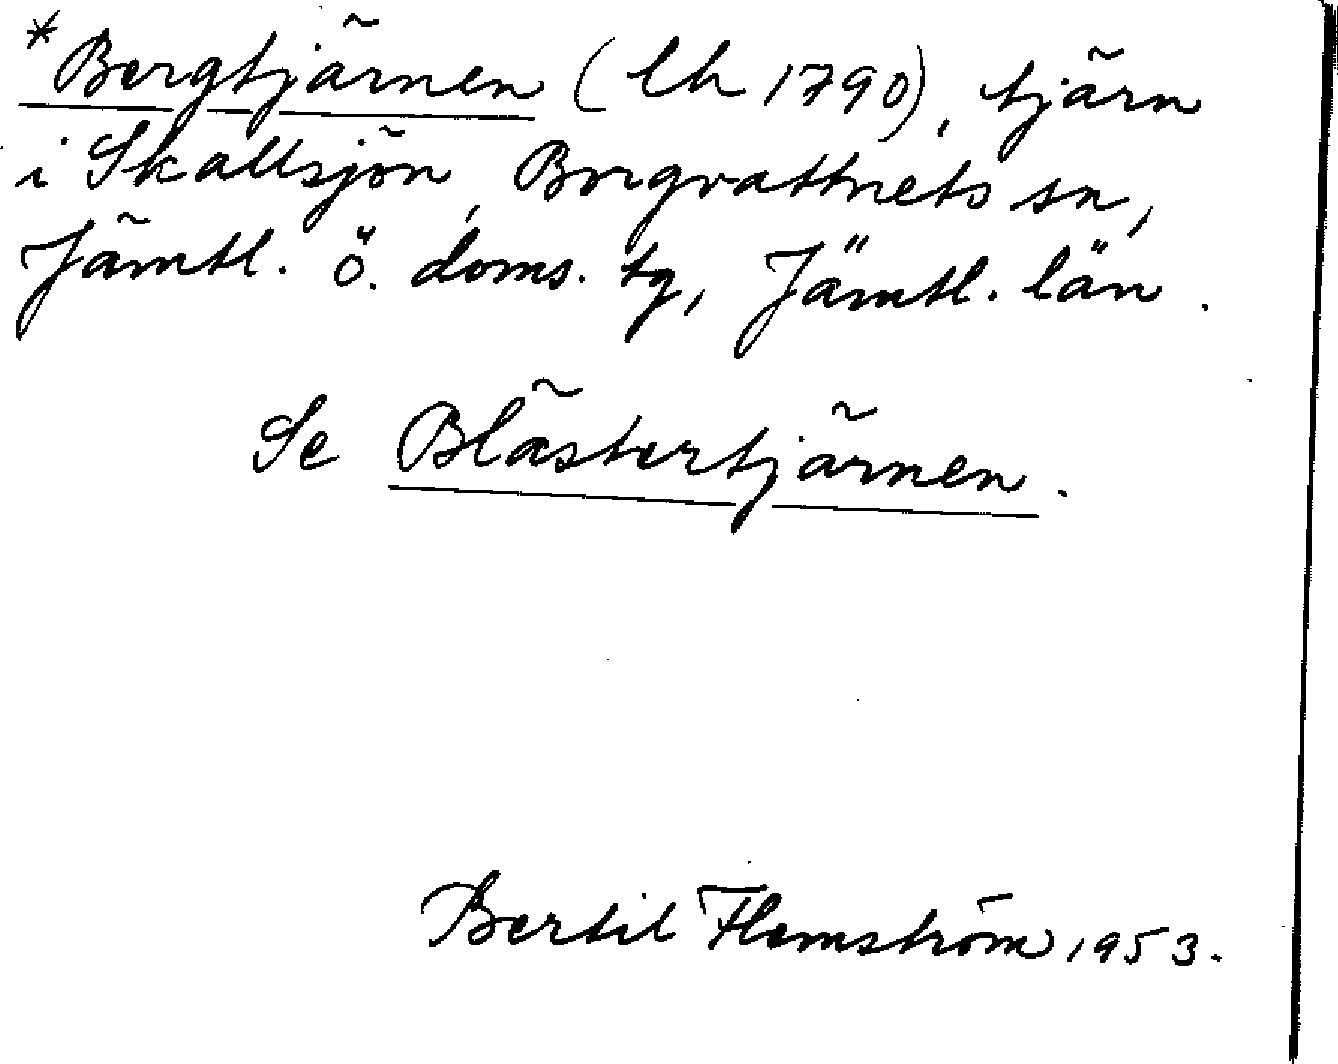 *Bergtjärnen (lh 1790), tjärn
i Skallsjön, Borgvattnets sn,
Jämtl. ö. doms. tg, Jämtl. län.
Se Blästertjärnen.
Bertil Flemström 1953.